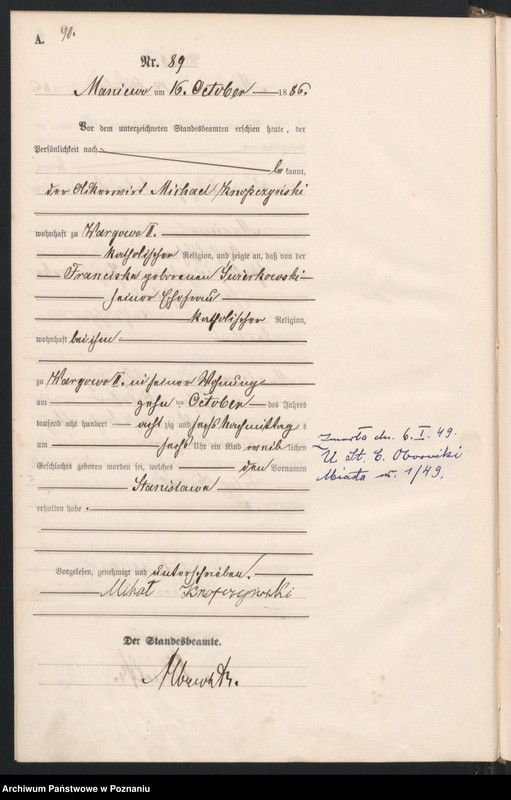 A. 90.
Nr. 89
Maniewo am 16. October 1886.
Vor dem unterzeichneten Standesbeamten erschien heute, der
Persönlichkeit nach
be kannt,
der Ackerwirt Michael
wohnhaft zu Wargowo II.
katholischer Religion, und zeigte an, daß von der
Franciska geborenen Swierkowski
seiner Ehefrau
katholischer Religion,
wohnhaft bei ihm
zu Wargowo II. in seiner Wohnung
am zehn ten October des Jahres
tausend acht hundert acht zig und sechs Nachmittag s
um sechs Uhr ein Kind weib lichen
Geschlechts geboren worden sei, welches den Vornamen
Stanislawa
erhalten habe.
Vorgelesen, genehmigt und unterschrieben.
Michał
Der Standesbeamte.
Zmarła dn. 6.I.49.
U St. C. Oborniki
Miasto nr. 1/49.
Archiwum Państwowe w Poznaniu